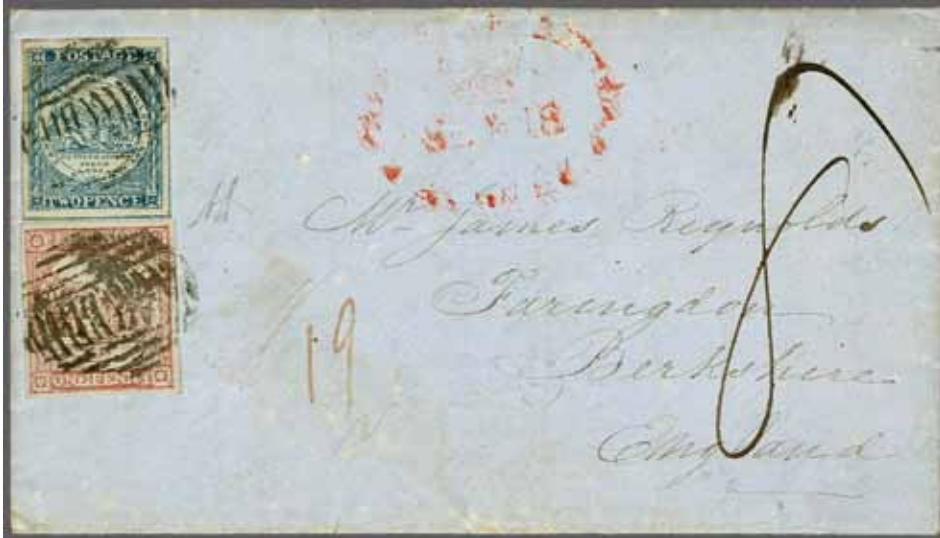 POSTAGE
TWOPENCE
ONE PENNY
Mr James Reynolds
Faringdon
Berkshire
England
8
19